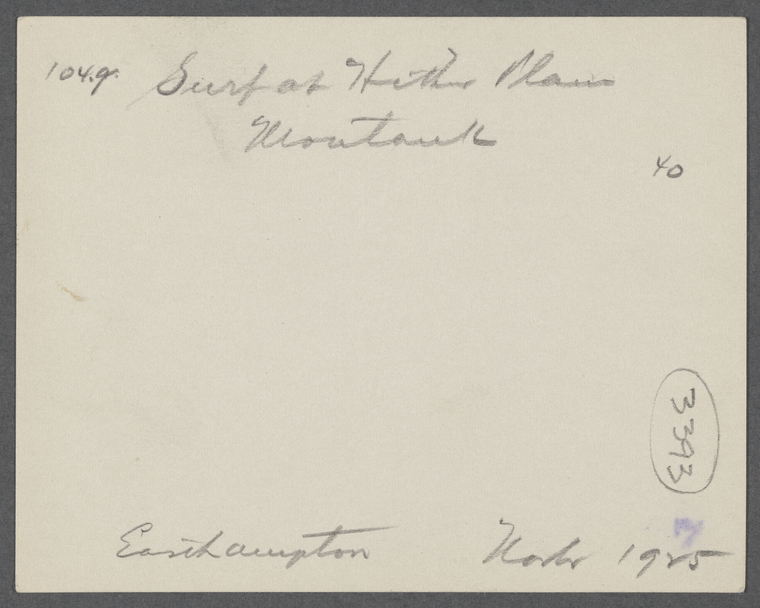 104.9. Surf at Hither Plain
Montauk
40
3393
Easthampton 1925